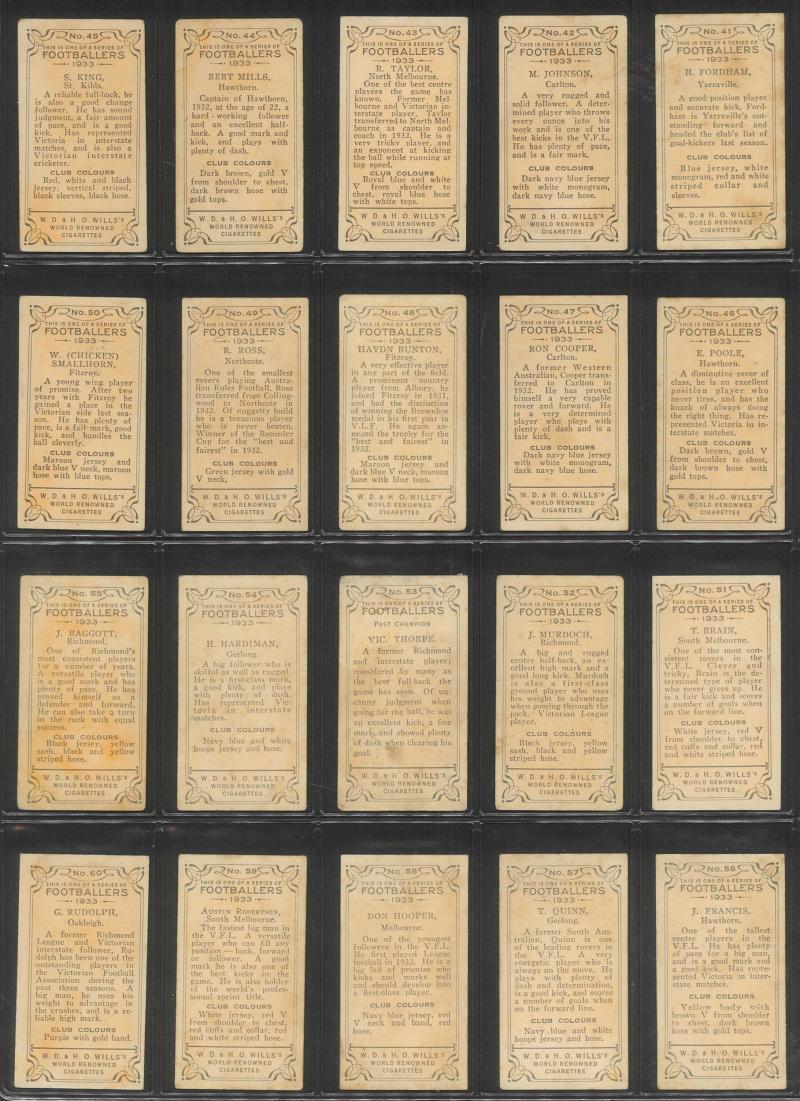 No. 45
THIS IS ONE OF A SERIES OF
FOOTBALLERS
1933
S. KING,
St. Kilda.
A reliable full-back, he
is also a good change
follower. He has sound
judgment, a fair amount
of pace, and is a good
kick. Has represented
Victoria in interstate
matches, and is also a
Victorian interstate
cricketer.
CLUB COLOURS
Red, white and black
jersey, vertical striped,
black sleeves, black hose.
W. D. & H. O. WILLS's
WORLD RENOWNED
CIGARETTES
No. 44
THIS IS ONE OF A SERIES OF
FOOTBALLERS
1933
BERT MILLS,
Hawthorn.
Captain of Hawthorn,
1932, at the age of 22, a
hard-working follower
and an excellent half-
back. A good mark and
kick, and plays with
plenty of dash.
CLUB COLOURS
Dark brown, gold V
from shoulder to chest,
dark brown hose with
gold tops.
W. D. & H. O. WILLS's
WORLD RENOWNED
CIGARETTES
No. 43
THIS IS ONE OF A SERIES OF
FOOTBALLERS
1933
R. TAYLOR,
North Melbourne.
One of the best centre
players the game has
known. Former Mel-
bourne and Victorian in-
terstate player, Taylor
transferred to North Mel-
bourne as captain and
coach in 1932. He is a
very tricky player, and
an exponent at kicking
the ball while running at
top speed.
CLUB COLOURS
Royal blue and white
V from shoulder to
chest, royal blue hose
with white tops.
W. D. & H. O. WILLS's
WORLD RENOWNED
CIGARETTES
No. 42
THIS IS ONE OF A SERIES OF
FOOTBALLERS
1933
M. JOHNSON,
Carlton.
A very rugged and
solid follower. A deter-
mined player who throws
every ounce into his
work and is one of the
best kicks in the V.F.L.
He has plenty of pace,
and is a fair mark.
CLUB COLOURS
Dark navy blue jersey
with white monogram,
dark navy blue hose.
W. D. & H. O. WILLS's
WORLD RENOWNED
CIGARETTES
No. 41
THIS IS ONE OF A SERIES OF
FOOTBALLERS
1933
H. FORDHAM,
Yarraville.
A good position player
and accurate kick, Ford-
ham is Yarraville's out-
standing forward and
headed the club's list of
goal-kickers last season.
CLUB COLOURS
Blue jersey, white
monogram, red and white
striped collar and
sleeves.
W. D. & H. O. WILLS's
WORLD RENOWNED
CIGARETTES
No. 50
THIS IS ONE OF A SERIES OF
FOOTBALLERS
1933
W. (CHICKEN)
SMALLHORN,
Fitzroy.
A young wing player
of promise. After two
years with Fitzroy he
gained a place in the
Victorian side last sea-
son. He has plenty of
pace, is a fair mark, good
kick, and handles the
ball cleverly.
CLUB COLOURS
Maroon jersey and
dark blue V neck, maroon
hose with blue tops.
W. D. & H. O. WILLS's
WORLD RENOWNED
CIGARETTES
No. 49
THIS IS ONE OF A SERIES OF
FOOTBALLERS
1933
R. ROSS,
Northcote.
One of the smallest
rovers playing Austra-
lian Rules Football, Ross
transferred from Colling-
wood to Northcote in
1932. Of nuggety build
he is a tenacious player
who is never beaten.
Winner of the Recorder
Cup for the "best and
fairest" in 1932.
CLUB COLOURS
Green jersey with gold
V neck,
W. D. & H. O. WILLS's
WORLD RENOWNED
CIGARETTES
No. 48
THIS IS ONE OF A SERIES OF
FOOTBALLERS
1933
HAYDN BUNTON,
Fitzroy.
A very effective player
in any part of the field.
A prominent country
player from Albury, he
joined Fitzroy in 1931,
and had the distinction
of winning the Brownlow
medal in his first year in
V.L.F. He again an-
nexed the trophy for the
"best and fairest" in
1932.
CLUB COLOURS
Maroon jersey and
dark blue V neck, maroon
hose with blue tops.
W. D. & H. O. WILLS's
WORLD RENOWNED
CIGARETTES
No. 47
THIS IS ONE OF A SERIES OF
FOOTBALLERS
1933
RON COOPER,
Carlton.
A former Western
Australian, Cooper trans-
ferred to Carlton in
1932. He has proved
himself a very capable
rover and forward. He
is a very determined
player who plays with
plenty of dash and is a
fair kick.
CLUB COLOURS
Dark navy blue jersey
with white monogram,
dark navy blue hose.
W. D. & H. O. WILLS's
WORLD RENOWNED
CIGARETTES
No. 46
THIS IS ONE OF A SERIES OF
FOOTBALLERS
1933
E. POOLE,
Hawthorn.
A diminutive rover of
class, he is an excellent
position player who
never tires, and has the
knack of always doing
the right thing. Has re-
presented Victoria in in-
terstate matches.
CLUB COLOURS
Dark brown, gold V
from shoulder to chest,
dark brown hose with
gold tops.
W. D. & H. O. WILLS's
WORLD RENOWNED
CIGARETTES
No. 55
THIS IS ONE OF A SERIES OF
FOOTBALLERS
1933
J. BAGGOTT,
Richmond,
One of Richmond's
most consistent players
for a number of years.
A versatile player who
is a good mark and has
plenty of pace. He has
proved himself as a
defender and forward.
He can also take a turn
in the ruck with equal
success.
CLUB COLOURS
Black jersey, yellow
sash, black and yellow
striped hose.
W. D. & H. O. WILLS's
WORLD RENOWNED
CIGARETTES
No. 54
THIS IS ONE OF A SERIES OF
FOOTBALLERS
1933
H. HARDIMAN,
Geelong.
A big follower who is
skilful as well as rugged.
He is a first-class mark,
a good kick, and plays
with plenty of dash.
Has represented Vic-
toria in interstate
matches.
CLUB COLOURS
Navy blue and white
hoops jersey and hose.
W. D. & H. O. WILLS's
WORLD RENOWNED
CIGARETTES
No. 53
THIS IS ONE OF A SERIES OF
FOOTBALLERS
1933
PAST CHAMPION
VIC. THORPE.
A former Richmond
and Interstate player;
considered by many as
the best full-back the
game has seen. Of un-
canny judgment when
going for the ball, he was
an excellent kick, a fine
mark, and showed plenty
of dash when clearing his
goal.
W. D. & H. O. WILLS's
WORLD RENOWNED
CIGARETTES
No. 52
THIS IS ONE OF A SERIES OF
FOOTBALLERS
1933
J. MURDOCH,
Richmond,
A big and rugged
centre half-back, an ex-
cellent high mark and a
good long kick, Murdoch
is also a first-class
ground player who uses
his weight to advantage
when coming through the
pack. Victorian League
player.
CLUB COLOURS
Black jersey, yellow
sash, black and yellow
striped hose.
W. D. & H. O. WILLS's
WORLD RENOWNED
CIGARETTES
No. 51
THIS IS ONE OF A SERIES OF
FOOTBALLERS
1933
T. BRAIN,
South Melbourne.
One of the most con-
sistent rovers in the
V.F.L. Clever and
tricky, Brain is the de-
termined type of player
who never gives up. He
is a fair kick and scores
a number of goals when
on the forward line.
CLUB COLOURS
White jersey, red V
from shoulder to chest,
red cuffs and collar, red
and white striped hose.
W. D. & H. O. WILLS's
WORLD RENOWNED
CIGARETTES
No. 60
THIS IS ONE OF A SERIES OF
FOOTBALLERS
1933
G. RUDOLPH,
Oakleigh.
A former Richmond
League and Victorian
interstate follower, Ru-
dolph has been one of the
outstanding players in
the Victorian Football
Association during the
past three seasons. A
big man, he uses his
weight to advantage in
the crushes, and is a re-
liable high mark.
CLUB COLOURS
Purple with gold band.
W. D. & H. O. WILLS's
WORLD RENOWNED
CIGARETTES
No. 59
THIS IS ONE OF A SERIES OF
FOOTBALLERS
1933
AUSTIN ROBERTSON,
South Melbourne.
The fastest big man in
the V.F.L. A versatile
player who can fill any
position—back, forward
or follower. A good
mark he is also one of
the best kicks in the
game. He is also holder
of the world's profes-
sional sprint title.
CLUB COLOURS
White jersey, red V
from shoulder to chest,
red cuffs and collar, red
and white striped hose.
W. D. & H. O. WILLS's
WORLD RENOWNED
CIGARETTES
No. 58
THIS IS ONE OF A SERIES OF
FOOTBALLERS
1933
DON HOOPER,
Melbourne.
One of the youngest
followers in the V.F.L.
He first played League
football in 1932. He is a
big lad of promise who
kicks and marks well
and should develop into
a first-class player.
CLUB COLOURS
Navy blue jersey, red
V neck and band, red
hose.
W. D. & H. O. WILLS's
WORLD RENOWNED
CIGARETTES
No. 57
THIS IS ONE OF A SERIES OF
FOOTBALLERS
1933
T. QUINN,
Geelong.
A former South Aus-
tralian, Quinn is one
of the leading rovers
in the V.F.L. A very
energetic player who is
always on the move. He
plays with plenty of
dash and determination,
is a good kick, and scores
a number of goals when
on the forward line.
CLUB COLOURS
Navy blue and white
hoops jersey and hose.
W. D. & H. O. WILLS's
WORLD RENOWNED
CIGARETTES
No. 56
THIS IS ONE OF A SERIES OF
FOOTBALLERS
1933
J. FRANCIS.
Hawthorn.
One of the tallest
centre players in the
V.F.L. He has plenty
of pace for a big man,
and is a good mark and
a good kick. Has repre-
sented Victoria in inter-
state matches.
CLUB COLOURS
Yellow body with
brown V from shoulder
to chest, dark brown
hose with gold tops.
W. D. & H. O. WILLS's
WORLD RENOWNED
CIGARETTES